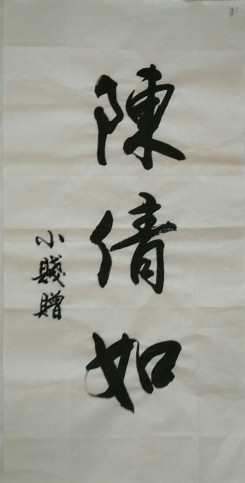 陳倩如
小賤贈